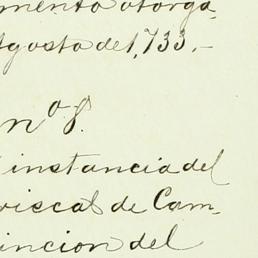 mento otorga
Agosto de 1,733.-
nº 8.
instancia del
riscal de Cam-
incion del